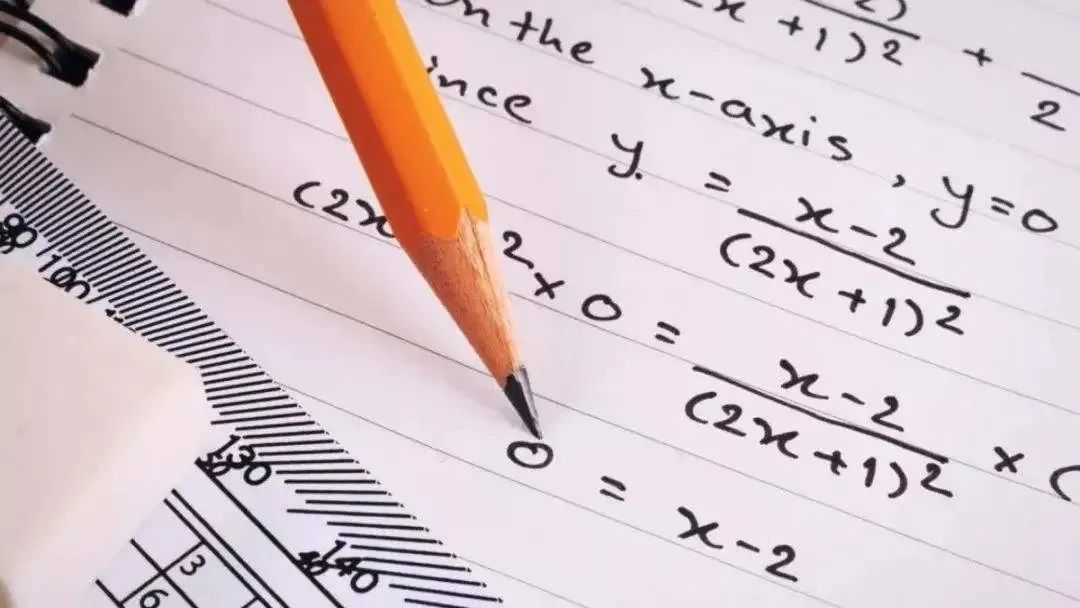 x + 1)² + 
2
on the x-axis, y=0
ince y = x-2
(2x+1)²
(2x ² × 0 = x-2
(2x+1)² × (
0 = x-2
90
100
130
140
3
6